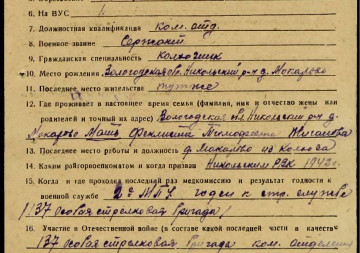 6. На ВУС 1
7. Должностная квалификация ком. отд.
8. Военное звание Сержант
9. Гражданская специальность Колхозник
10. Место рождения Вологодская обл. Никольский р-н д. Мокарово
11. Последнее место жительства тут же
12. Где проживает в настоящее время семья (фамилия, имя и отчество жены или
родителей и точный их адрес) Вологодская обл. Никольский р-н д.
Мокарово Мать
13. Последнее место работы и должность д. из колхоза
14. Каким райгорвоенкоматом и когда призван Никольским РВК 1942 г.
15. Когда и где проходил последний раз медкомиссию и результат годности к
военной службе годен к стр. службе
/137 Особая стрелковая бригада/
16. Участие в Отечественной войне (в составе какой последней части в качеств
137 Особая стрелковая бригада ком. отделения